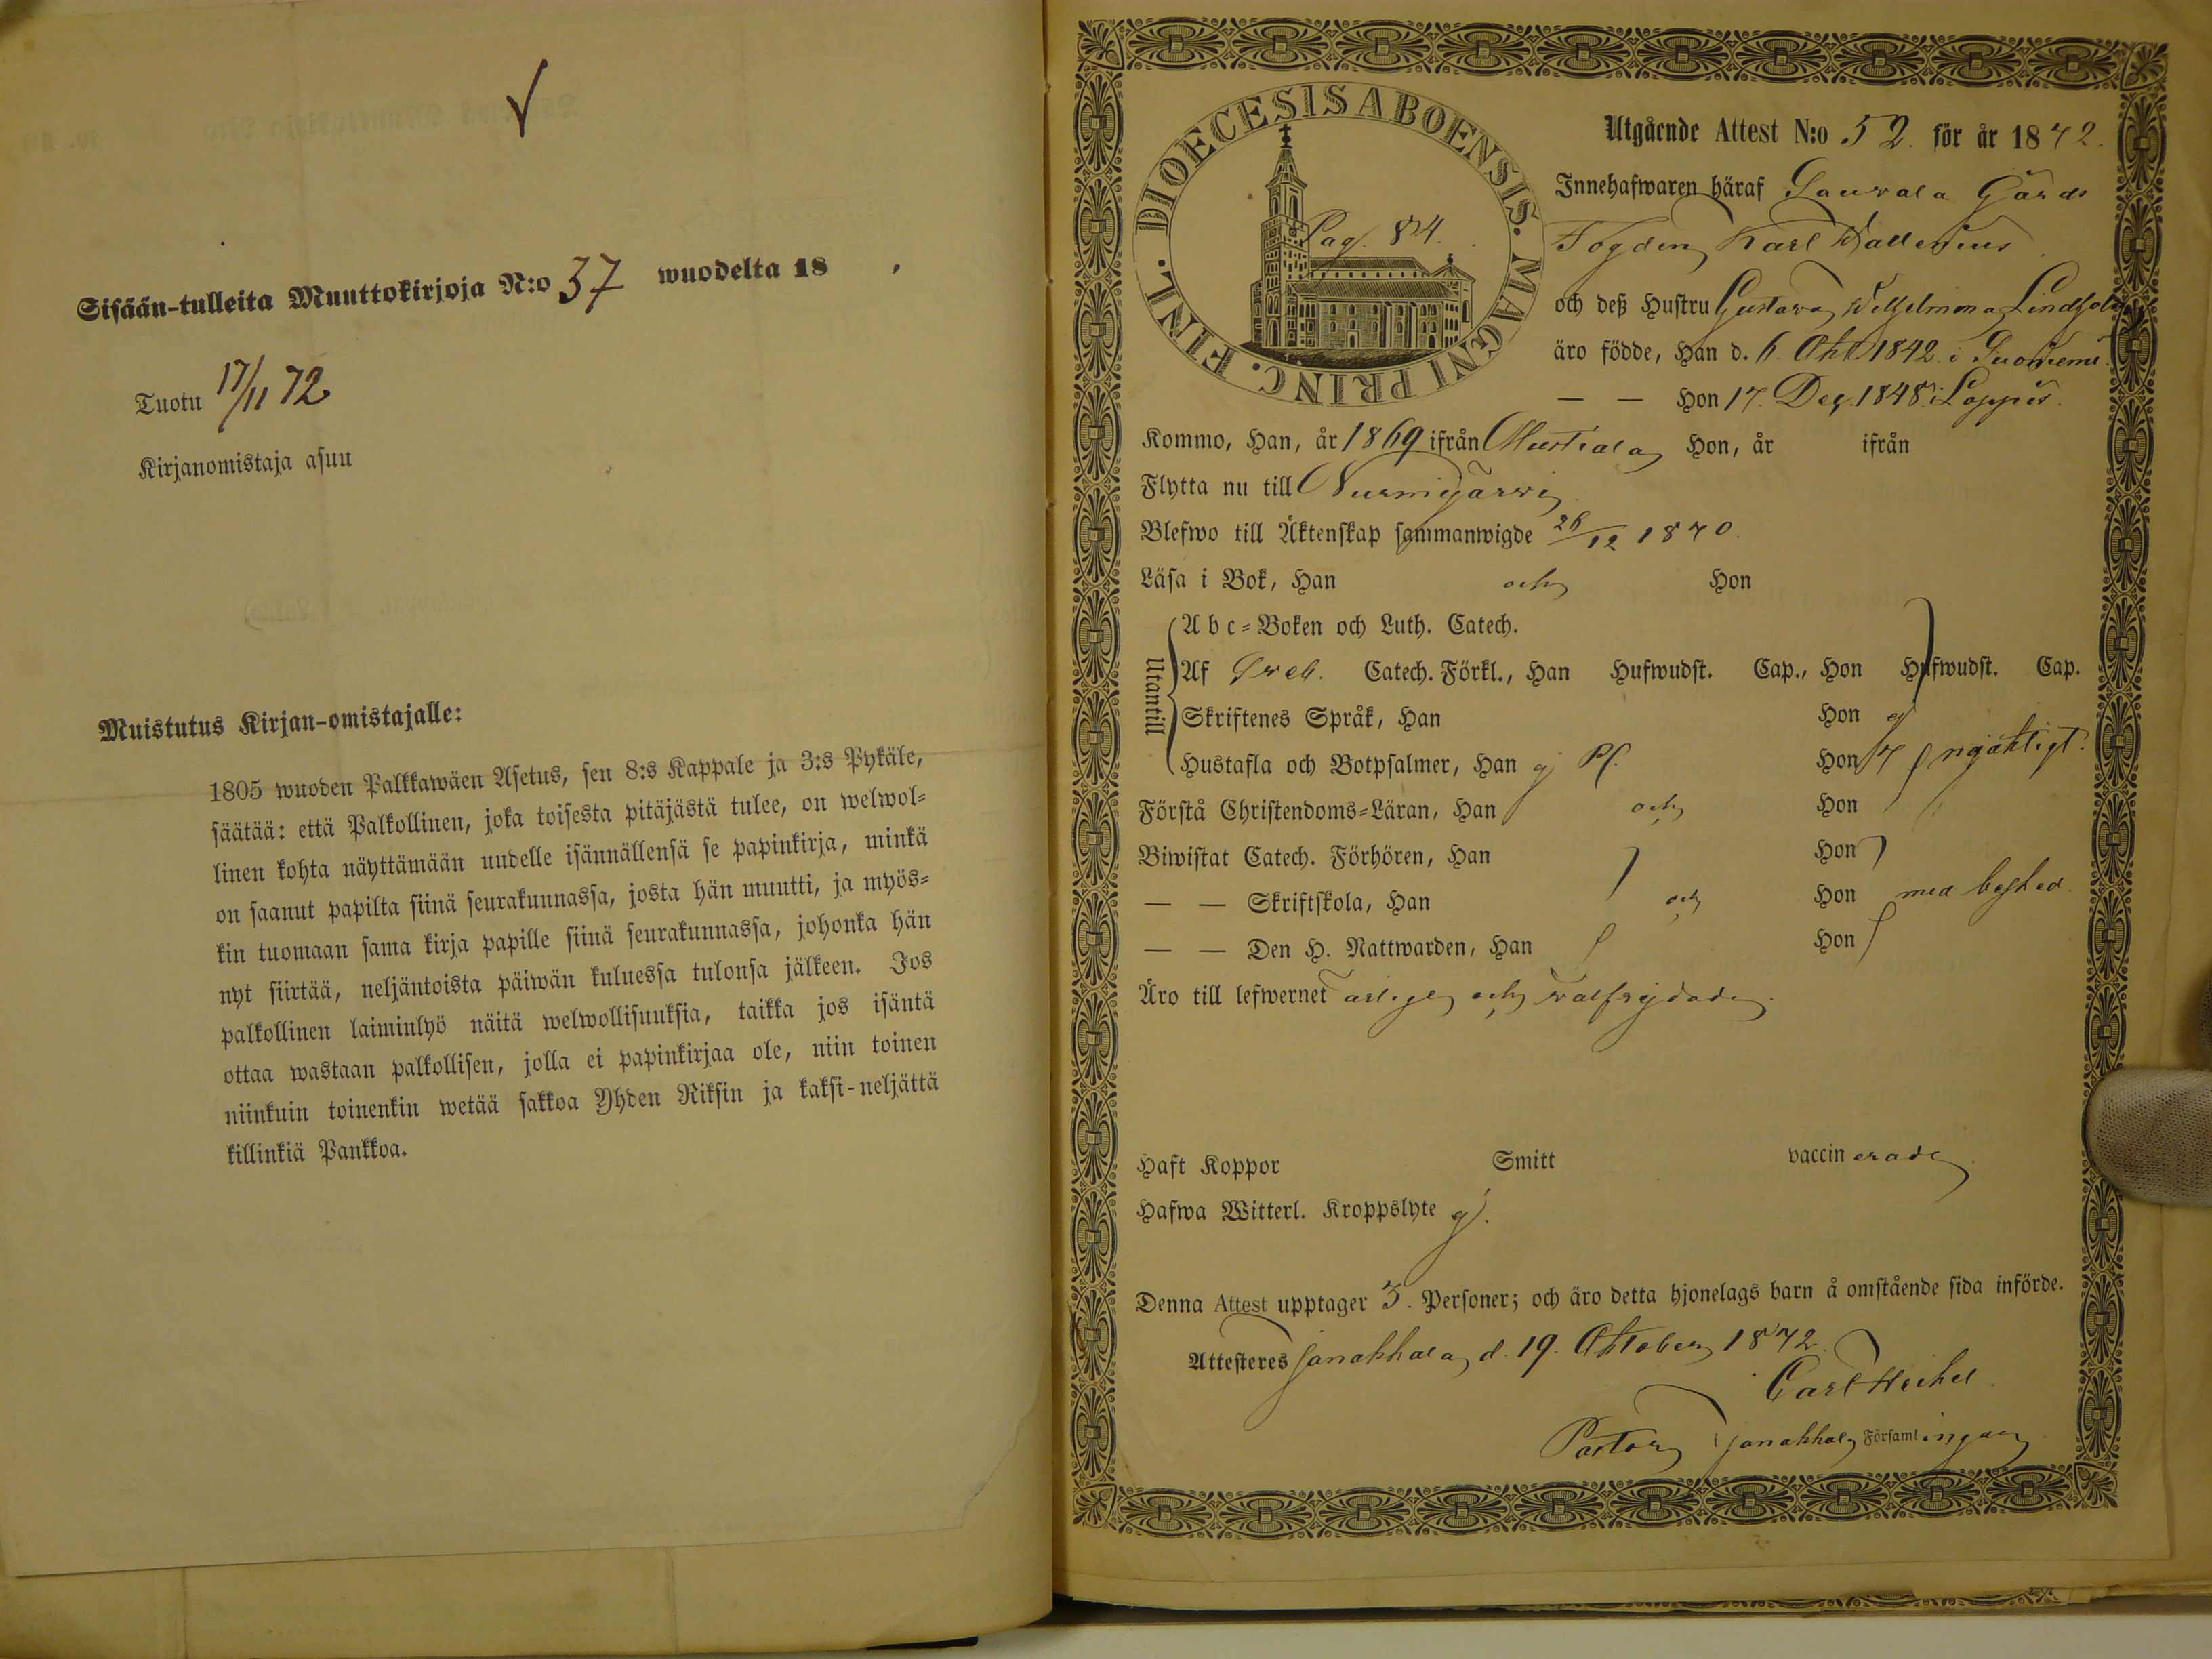 Sisään-tulleita Muuttokirjoja N:o 37 wuodelta 18 .
Tuotu 17/11 72
Kirjanomistaja asuu
Muistutus Kirjan-omistajalle:
1805 wuoden Palkkawäen Asetus, sen 8:s Kappale ja 3:s Pykäle,
säätää: että Palkollinen, joka toisesta pitäjästä tulee, on welwol-
linen kohta näyttämään uudelle isännällensä se papinkirja, minkä
on saanut papilta siinä seurakunnassa, josta hän muutti, ja myös-
kin tuomaan sama kirja papille siinä seurakunnassa, johonka hän
nyt siirtää, neljäntoista päiwän kuluessa tulonsa jälkeen. Jos
palkollinen laiminlyö näitä welwollisuuksia, taikka jos isäntä
ottaa wastaan palkollisen, jolla ei papinkirjaa ole, niin toinen
niinkuin toinenkin wetää sakkoa Yhden Riksin ja kaksi-neljättä
killinkiä Pankkoa.
DIOECESIS ABOENSIS. MAGNI PRINC. FINL.
Pag. 84.
Utgående Attest N:o 52. för år 1872.
Innehafwaren häraf Gårds
Fogden Karl
och deß Hustru Gustava Wilhelmina
äro födde, Han d. 6. Okt 1842 i Suoniemi
— — Hon 17. Dec. 1848 i Loppis.
Kommo, Han, år 1869 ifrån Mustiala Hon, år ifrån
Flytta nu till Nurmijärwi
Blefwo till Äktenskap sammanwigde 26/12 1870.
Läsa i Bok, Han och Hon
Utantill
Abc-Boken och Luth. Catech.
Af Sveb. Catech. Förkl., Han Hufwudst. Cap., Hon Hufwudst. Cap.
Skriftenes Språk, Han Hon
Hustafla och Botpsalmer, Han Hon nöjaktigt.
Förstå Christendoms-Läran, Han och Hon
Biwistat Catech. Förhören, Han Hon
— — Skriftskola, Han och Hon med besked.
— — Den H. Nattwarden, Han Hon
Äro till lefwernet ärliga och wälfrejdade.
Haft Koppor Smitt vaccinerade
Hafwa Witterl. Kroppslyte ej.
Denna Attest upptager 3. Personer; och äro detta hjonelags barn å omstående sida införde.
Attesteres Janakkala d. 19. Oktober 1872.
Carl Heikel
Pastor i Janakkala Församlingar